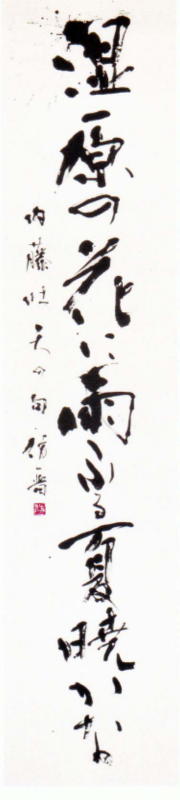 湿原の花に雨ふる夏暁かな
内藤吐天の句